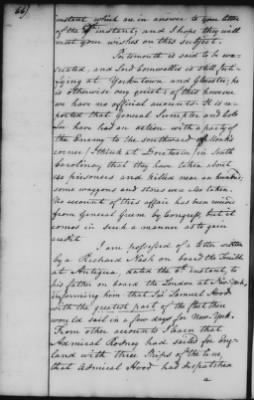 467
instant which are in answer to your letter
of the instant; and I hope they will
meet your wishes on this subject.
Portsmouth is said to be eva-
cuated, and Lord Cornwallis is still for-
tifying at Yorktown and Gloucester; he
is otherwise very quiet; of this however
we have no official accounts. It is re-
ported that General Sumpter and Colo
Lee have had an action with a party of
the Enemy to the Southward of Monks
corner (I think at Dorchester) in South
Carolina; that they have taken about
140 prisoners and killed near an hundred;
some waggons and stores were also taken.
No account of this affair has been received
from General Green by Congress, but it
comes in such a manner as to gain
credit.
I am possessed of a letter written
by a Richard Nash on board the
at Antigua, dated the instant, to
his father on board the London at New York,
informing him that Sir Samuel Hood
with the greatest part of the fleet there
would sail in a few days for New York.
From other accounts I learn that
Admiral Rodney had sailed for Eng-
land with three Ships of the line,
that Admiral Hood had dispatched
a